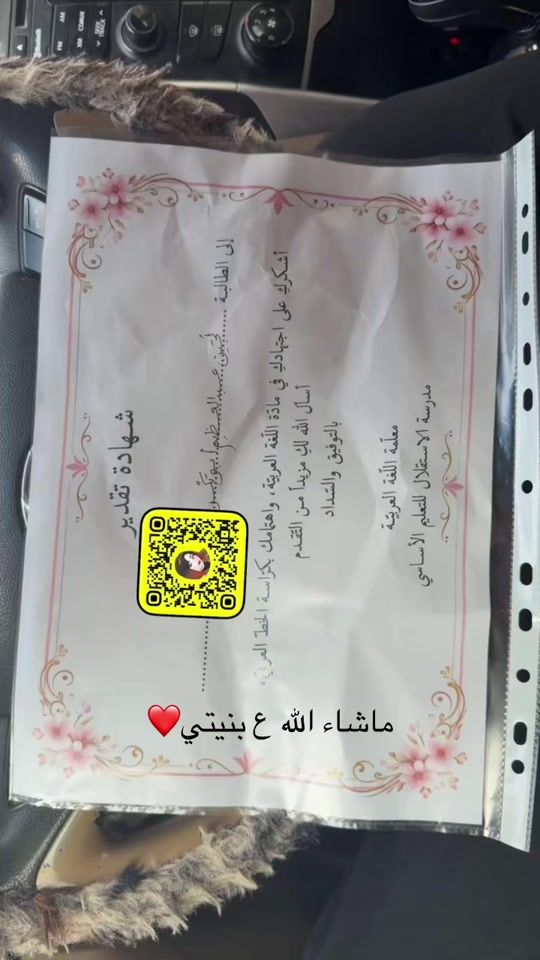 شهادة تقدير
إلى الطالبة
أشكركِ على اجتهادكِ في مادّة اللّغة العربيّة، واهتمامك بكرّاسة الخطّ العربيّ،
أسأل الله لكِ مزيداً من التّقدم
بالتوفيق والسّداد
معلّمة اللّغة العربيّة
مدرسة الاستقلال للتعليم الأساسي
ماشاء الله ع بنيتي❤️
FM
AM
XM
CD/AUX
SEEK
TRACK
Bluetooth